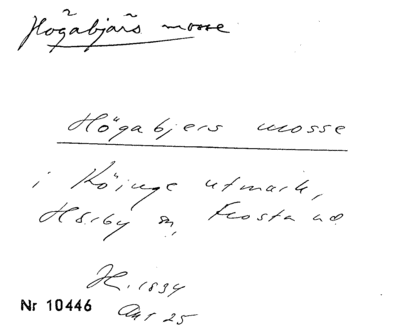 Högabjärs mosse
Högabjers mosse
i Köinge utmark,
Hörby sn, Frosta hd
H. 1834
Nr 10446
25